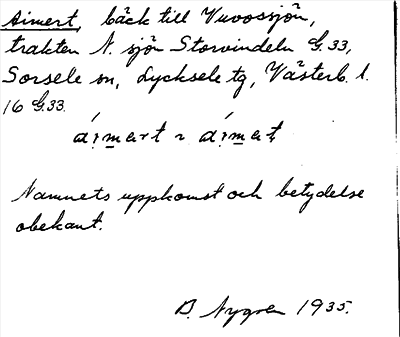 Aimert, bäck till Vuvossjön,
trakten N. sjön Storvindeln G.33,
Sorsele sn, Lycksele tg, Västerb. l.
16 G.33.
ái̯mert ~ ái̯met
Namnets uppkomst och betydelse
obekant.
B. Nygren 1935.